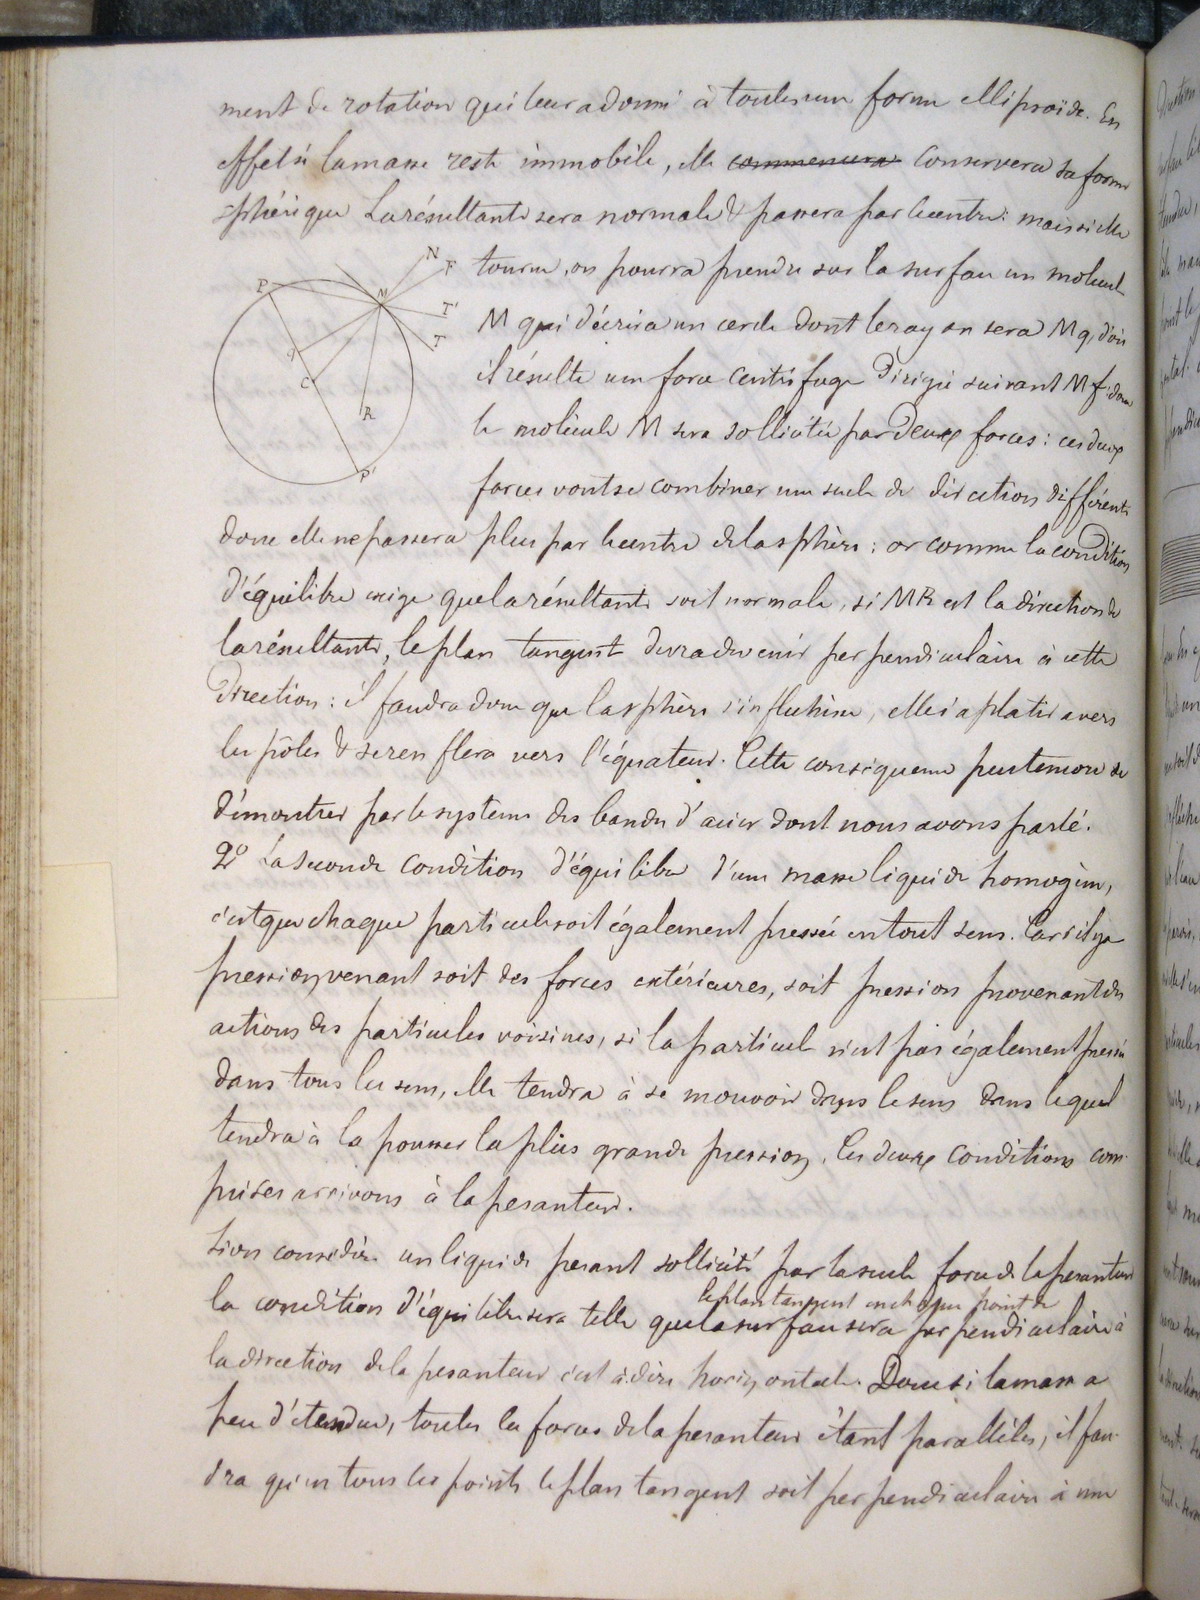 ment de rotation qui leur a donné à toutes une forme ellipsoïde. En
effet si la masse reste immobile, elle commencera conservera sa forme
sphérique La résultante sera normale & passera par le centre: mais si elle
tourne, on pourra prendre sur la surface un molécule
M qui décrira un cercle dont le rayon sera Mq, d'où
il résulte une force centrifuge dirigée suivant Mf. donc
la molécule M sera sollicitée par deux forces: ces deux
forces vont se combiner une seule de direction différente
donc elle ne passera plus par le centre de la sphère: or comme la condition
d'équilibre exige que la résultante soit normale, si MR est la direction de
la résultante, le plan tangent devra devenir perpendiculaire à cette
direction: il faudra donc que la sphère s'infléchisse, elle s'aplatira vers
les pôles & se renflera vers l'équateur. Cette conséquence peut encore se
démontrer par le système des bandes d'acier dont nous avons parlé.
2º La seconde condition d'équilibre d'une masse liquide homogène,
c'est que chaque particule soit également pressée en tout sens. Car s'il y a
pression, venant soit des forces extérieures, soit pression provenant des
actions des particules voisines, si la particule n'est pas également pressée
dans tous les sens, elle tendra à se mouvoir dans le sens dans lequel
tendra à la pousser la plus grande pression. Ces deux conditions com-
prises arrivons à la pesanteur.
Si on considère un liquide pesant sollicité par la seule force de la pesanteur
le plan tangent en chaque point de
la condition d'équilibre sera telle que la surface sera perpendiculaire à
la direction de la pesanteur c'est à dire horizontale. Donc si la masse a
peu d'étendue, toutes les forces de la pesanteur étant parallèles, il fau-
dra qu'en tous les points le plan tangent soit perpendiculaire à une
P
M
N
F
T'
T
q
C
R
P'